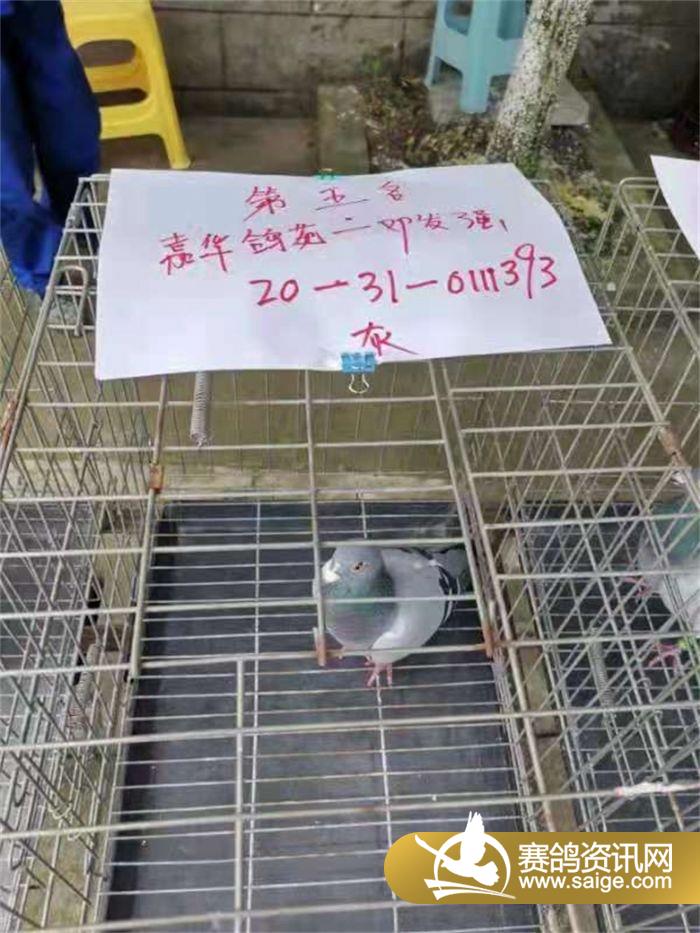 第五名
嘉华鸽苑－邓发强
20-31-0111393
灰
赛鸽资讯网
www.saige.com